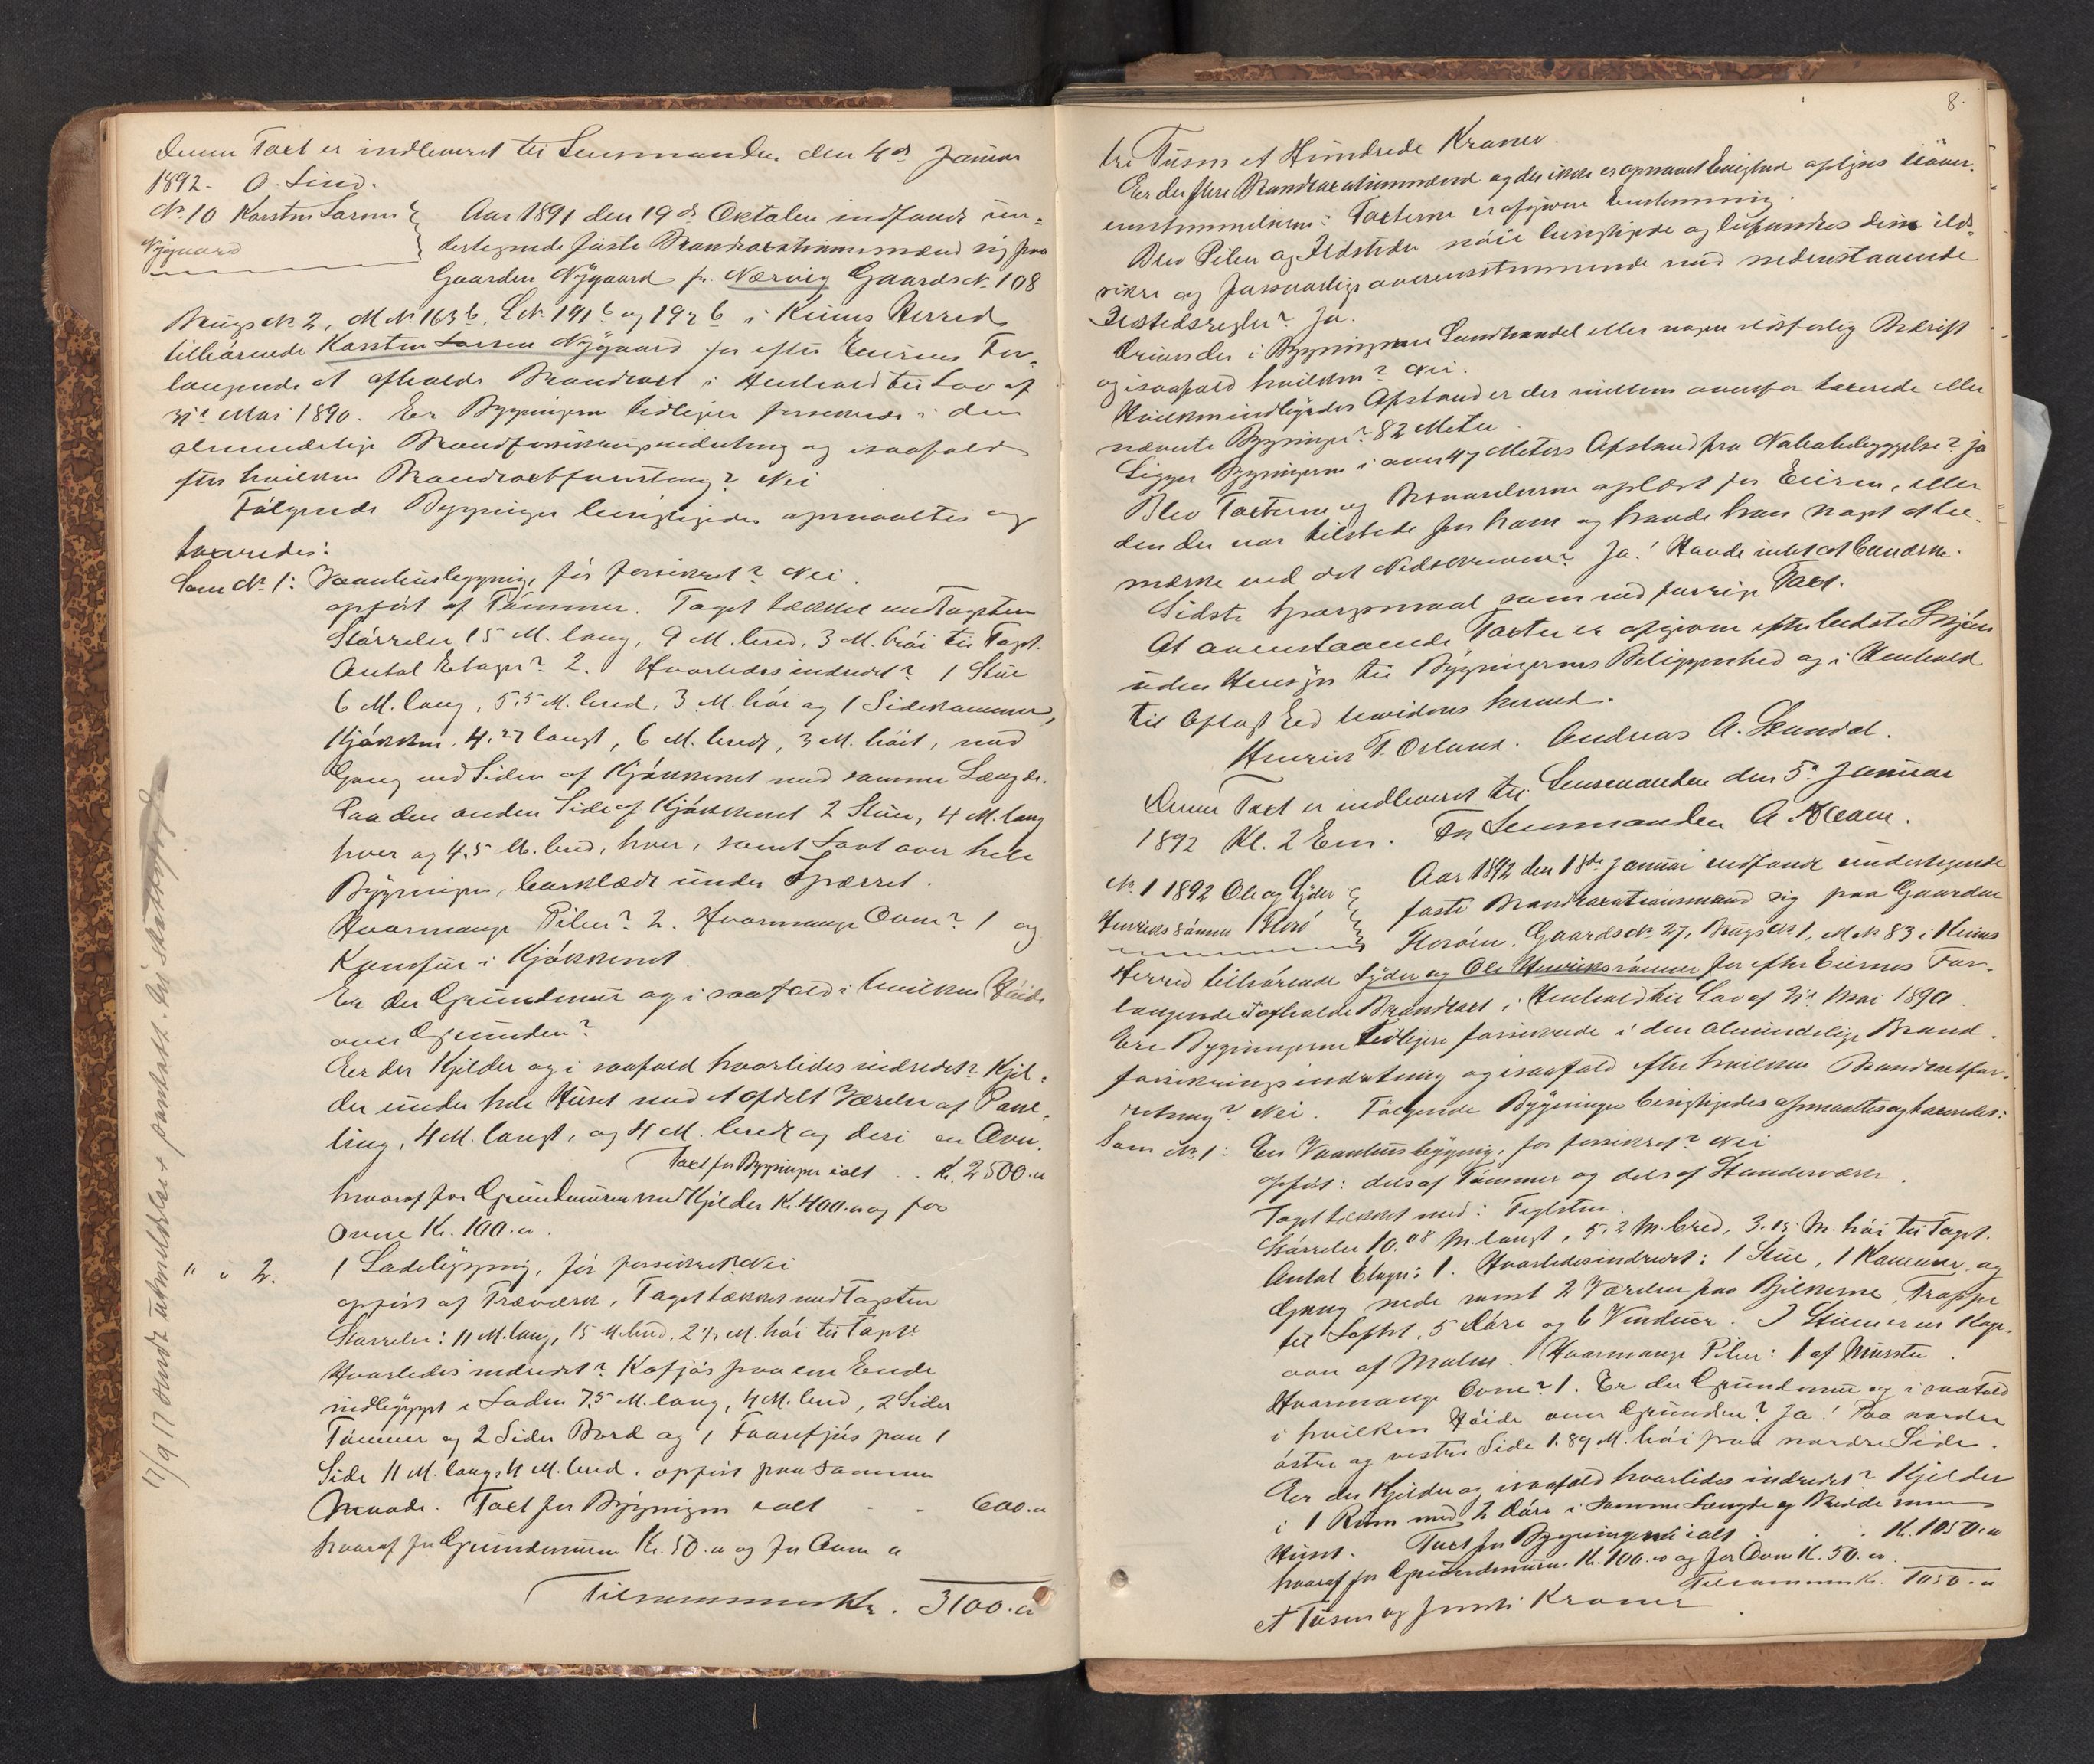 Denne Taxt er indleveret til Lensmanden den 4de Januar
1892. O. Lind.
No 10 Karsten Larsen
Nÿgaard
Aar 1891 den 19de Oktober indfandt un-
dertegnede faste Brandtaxationsmænd sig paa
Gaarden Nÿgaard fr. Nærvig Gaards No 108
Brugs No 2, M No 163b, L No 191b og 192b i Kinns Herred
tilhørende Karsten Larsen Nÿgaard for efter Eierens For-
langende at afholde Brandtaxt i Henhold til Lov af
31te Mai 1890. Er Bygningerne tidligere forsikrede i den
almindelige Brandforsikringsindretning og isaafald
efter hvilken Brandtaxtforretning? Nei
Følgende Bygninger besigtigedes opmaaltes og
taxeredes:
Som No 1: Vaanhusbygning, før forsikret? Nei.
opført af Tømmer. Taget tækket med Tagsten
Størrelse 15 M. lang, 9 M. bred, 3 M. høi til Taget.
Antal Etager? 2. Hvorledes indredet? 1 Stue
6 M. lang, 5,5 M. bred, 3 M. høi og 1 Sidekammer,
Kjøkken, 4,27 langt, 6 M. bredt, 3 M. høit, med
Gang ved Siden af Kjøkkenet med samme Længde.
Paa den anden Side af Kjøkkenet 2 Stuer, 4 M. lang
hver og 4,5 M. bred, hver, samt Loft over hele
Bÿgningen, bordklædt under Spærret.
Hvormange Piber? 2. Hvormange Ovne? 1 og
Komfur i Kjøkkenet.
Er der Grundmur og i saafald i hvilken Høide
over Grunden?
Er der Kjelder og i saafald hvorledes indredet? Kjel-
der under hele Huset med et afdelt Værelse af Pane-
ling, 4 M. langt, og 4 M. bredt og deri en Ovn.
Taxt for Bygningen ialt . . Kr. 2500.00
hvoraf for Grundmuren med Kjelder Kr. 400.00 og for
Ovne Kr. 100.00.
" " 2. 1 Ladebÿgning, før forsikret? Nei
opført af Træværk, Taget tækket med Tagsten
Størrelse: 11 M. lang, 15 M. bred, 2½ M. høi til Taget
Hvorledes indredet? Kofjøs paa ene Ende
indbÿgget i Laden 7,5 M. lang, 4 M. bred, 2 Sider
Tømmer og 2 Sider Bord og 1 Faarefjøs paa 1
Side 11 M. lang, 4 M. bred, opført paa samme
Maade. Taxt for Bÿgningen ialt - - 600.00
hvoraf for Grundmuren Kr. 50.00 og for Ovne 0
Tilsammen Kr. 3100.00
17/9 17 sendt utmeldelse + pantatt. til skattefogd
8.
tre Tusen et Hundrede Kroner.
Er der flere Brandtaxationsmænd og der ikke er opnaaet Enighed oplyses Uover-
ensstemmelserne: Taxterne er afgivne Enstemmig.
Blev Piber og Ildsteder nøie besigtigede og befandtes disse ild-
sikre og forsvarlige overensstemmende med nedenstaaende
Ildstedsregler? Ja.
Drives der i Bygningerne Landhandel eller nogen ildsfarlig Bedrift
og isaafald hvilken? Nei.
Hvilken indbyrdes Afstand er der mellem ovenfor taxerede eller
nævnte Bygninger? 82 Meter.
Ligger Bygningerne i over 47 Meters Afstand fra Nabobebyggelse? Ja
Blev Taxterne og Besvarelserne oplæst for Eieren, eller
den der var tilstede for ham og havde han noget at be-
mærke ved det Nedskrevne? Ja! Havde intet at bemærke.
Sidste Spørgsmaal som ved forrige Taxt.
At ovenstaaende Taxter er afgivne efter bedste Skjøn
uden Hensÿn til Bÿgningernes Beliggenhed og i Henhold
til aflagt Ed bevidnes herved.
Henrik T. Osland. Andreas A. Standal.
Denne Taxt er indleveret til Lensmanden den 5te Januar
1892 Kl. 2 Em. For Lensmanden A.
No 1 1892 Ole og Lÿder
Henrikssønner Florø
Aar 1892 den 18de Januar indfandt undertegnede
faste Brandtaxationsmænd sig paa Gaarden
Florøen, Gaards No 27, Brugs No 1, M No 83 i Kinns
Herred tilhørende Lÿder og Ole Henrikssønner for efter Eiernes For-
langende at afholde Brandtaxt i Henhold til Lov af 31te Mai 1890.
Ere Bygningerne tidligere forsikrede i den almindelige Brand-
forsikringsindretning og isaafald efter hvilken Brandtaxtfor-
retning? Nei. Følgende Bÿgninger besigtigedes opmaaltes og taxeredes:
Som No 1: En Vaanhusbÿgning, før forsikret? Nei
opført: dels af Tømmer og dels af Standerværk.
Taget tækket med: Teglsten.
Størrelse 10,08 M. langt, 5,2 M. bred, 3,15 M. høi til Taget.
Antal Etager: 1. Hvorledes indredet: 1 Stue, 1 Kammer og
Gang nede samt 2 Værelser paa Bjelkerne, Trappe
til Loftet, 5 Døre og 6 Vinduer. I Stuen er en Kog-
ovn af Malm. Hvormange Piber: 1 af Mursten.
Hvormange Ovne? 1. Er der Grundmur og i saafald
i hvilken Høide over Grunden? Ja! Paa nordre
østre og vestre Side 1,89 M. høi paa nordre Side.
Er der Kjelder og isaafald hvorledes indredet? Kjelder
i 1 Rum med 2 Døre i samme Længde og Bredde som
Huset. Taxt for Bygningen ialt . . . Kr. 1050.00
hvoraf for Grundmuren Kr. 100.00 og for Ovne Kr. 50.00.
Tilsammen Kr. 1050.00
et Tusen og femti Kroner